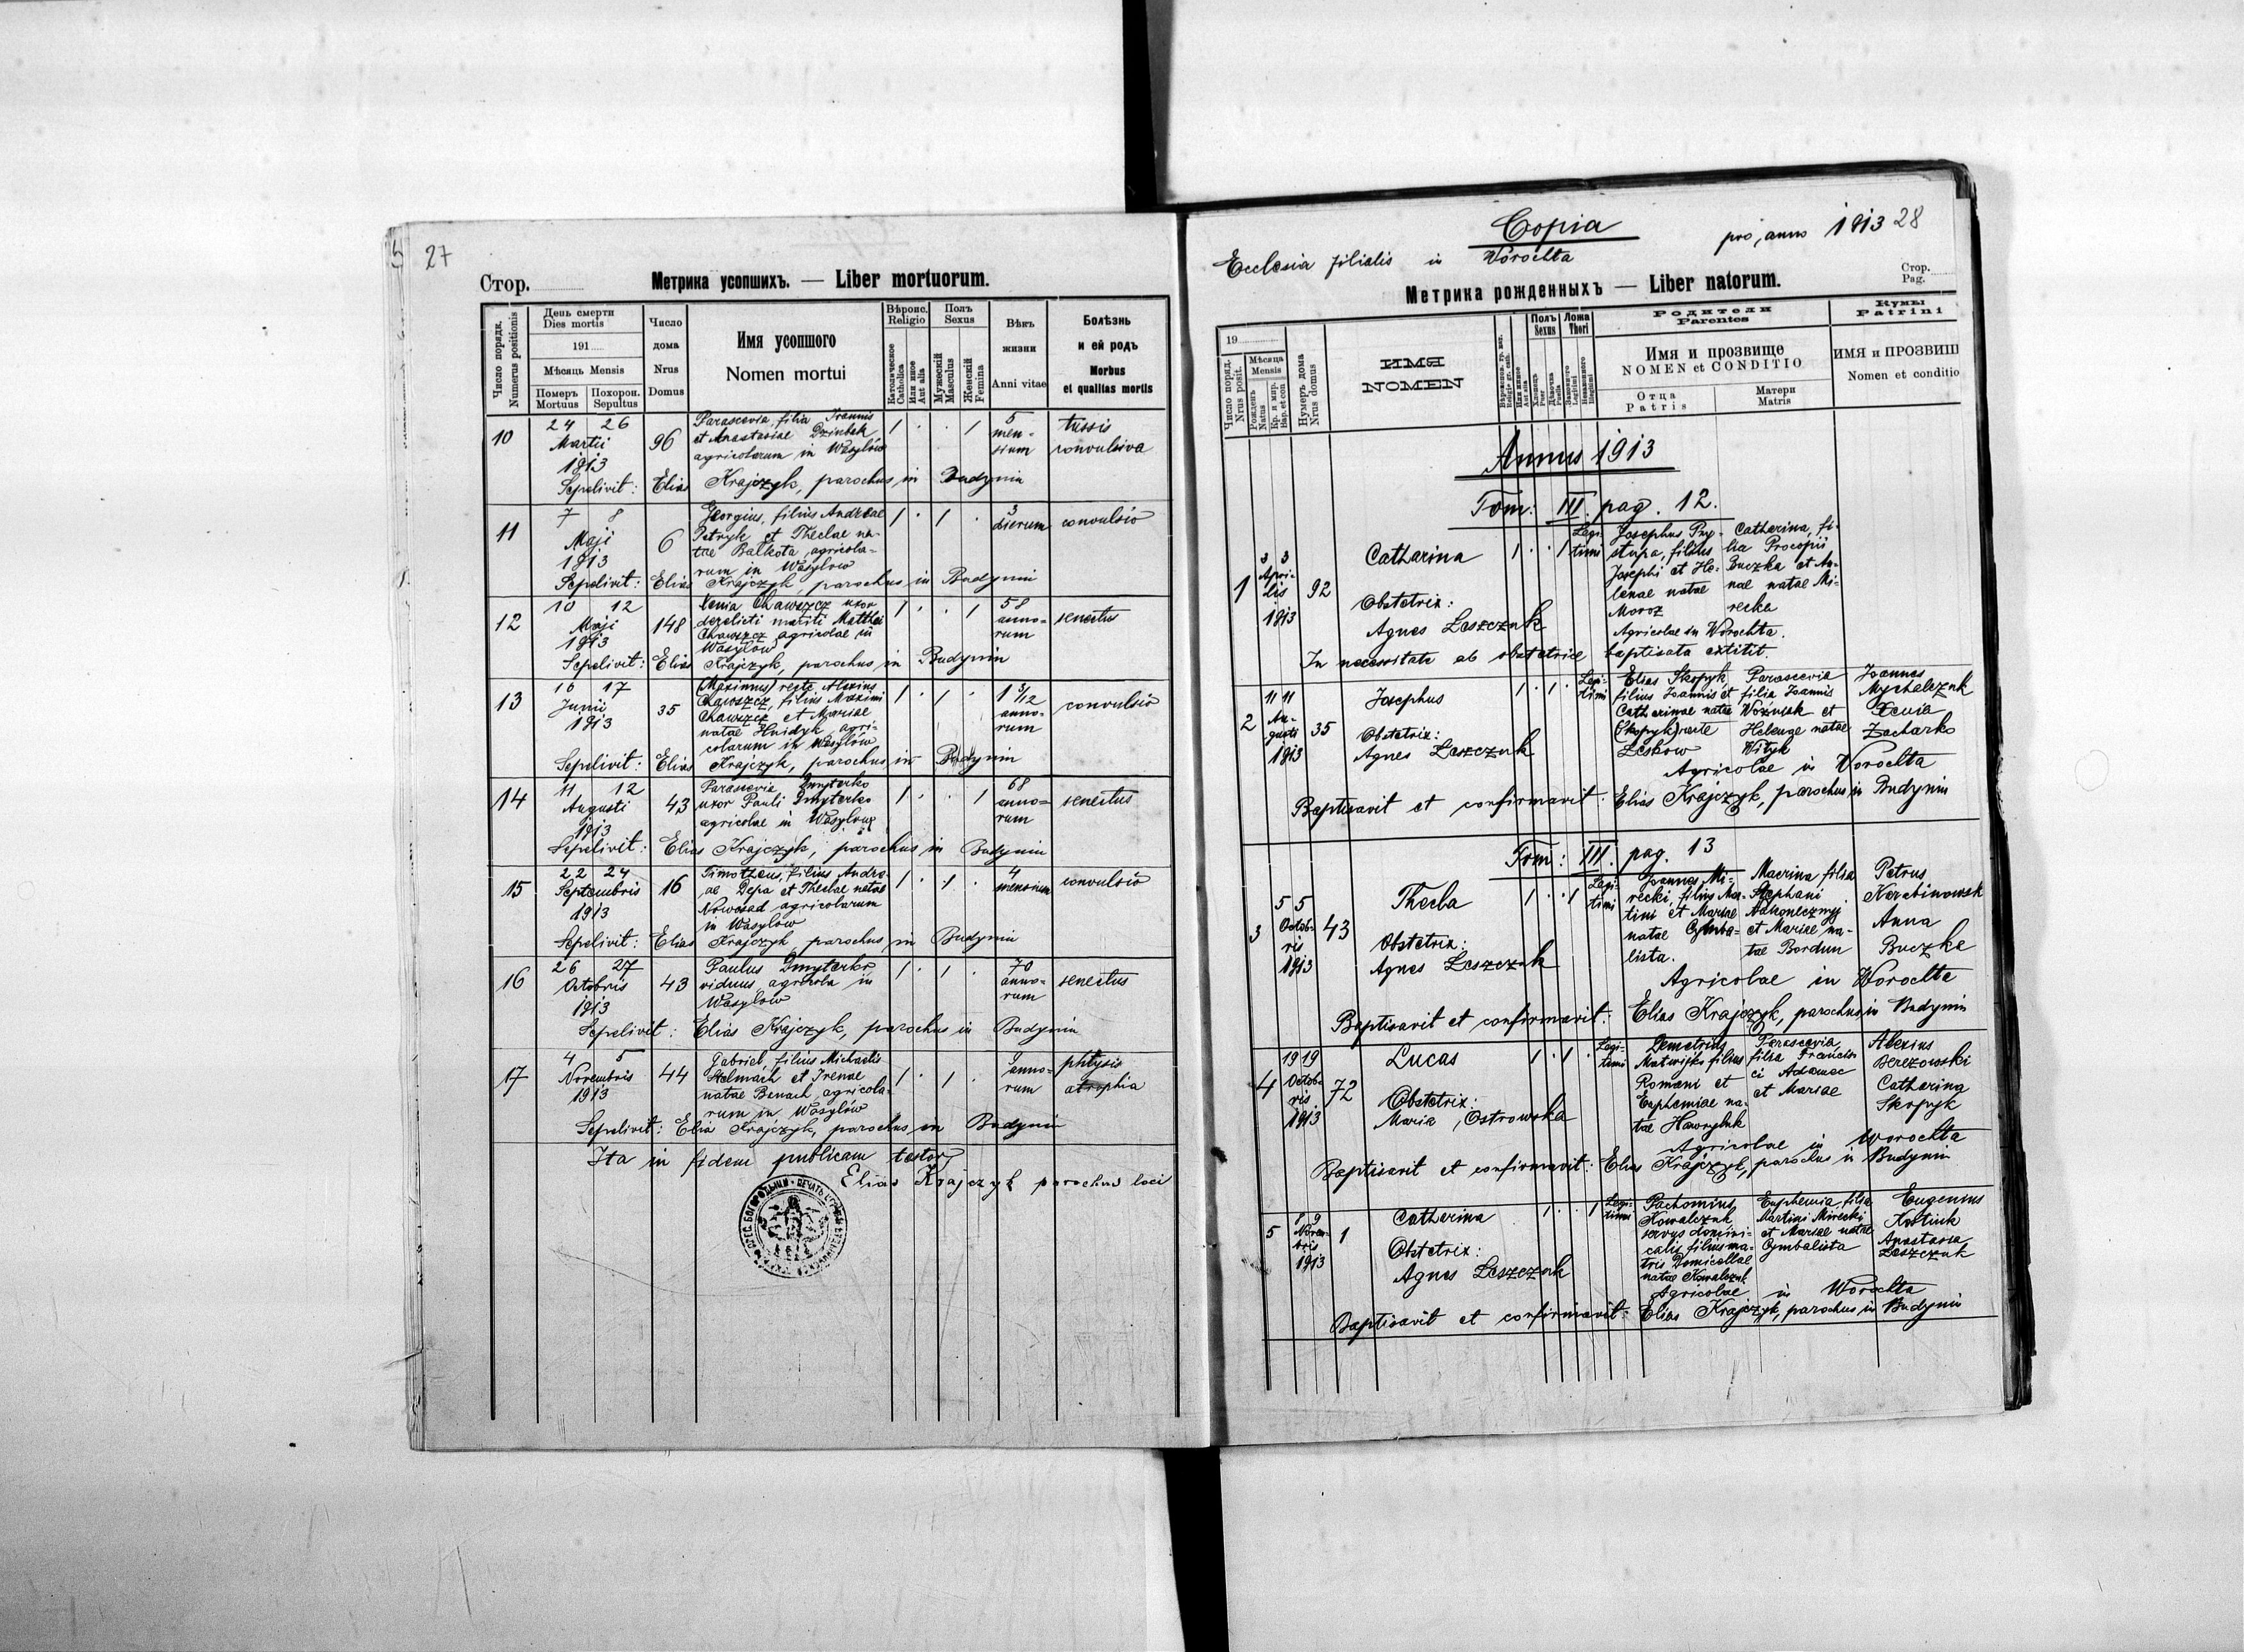 27
Стор.
Метрика усопшихъ. — Liber mortuorum.
Число порядк.
Numerus positionis
День смерти
Dies mortis
191
Мѣсяць Mensis
Померъ
Mortuus
Похорон.
Sepultus
Число
дома
Nrus
Domus
Имя усопшого
Nomen mortui
Вѣроис.
Religio
Католическое
Catholica
Или иное
Aut alia
Полъ
Sexus
Мужескій
Masculus
Женскій
Femina
Вѣкъ
жизни
Anni vitae
Болѣзнь
и ей родъ
Morbus
et qualitas mortis
10
24 26
Martii
1913
96
Parascevia, filia Ioannis
et Anastasiae Dziubak
agricolarum in Wasylów
1 . . 1
5
men-
sium
tussis
convulsiva
Sepelivit: Elias Krajczyk, parochus in Budynin
11
7 8
Maji
1913
6
Georgius, filius Andreae
Petryk et Theclae na-
tae Balkota, agricola-
rum in Wasylow
1 . 1 .
3
dierum
convulsio
Sepelivit: Elias Krajczyk, parochus in Budynin
12
10 12
Maji
1913
148
Xenia Chawszcz uxor
derelicti mariti Matthei
Chawszcz agricolae in
Wasylów
1 . . 1
58
anno-
rum
senectus
Sepelivit: Elias Krajczyk, parochus in Budynin
13
16 17
Junii
1913
35
(Maximus) recte Alexius
Chawszcz, filius Maximi
Chawszcz et Mariae
natae Hnidyk agri-
colarum in Wasylów
1 . 1 .
1 3/12
anno-
rum
convulsio
Sepelivit: Elias Krajczyk, parochus in Budynin
14
11 12
Augusti
1913
43
Parascevia Dmyterko
uxor Pauli Dmyterko
agricolae in Wasylow
1 . . 1
68
anno-
rum
senectus
Sepelivit: Elias Krajczyk, parochus in Budynin
15
22 24
Septembris
1913
16
Timotheus, filius Andre-
ae Depa et Theclae natae
Nowosad agricolarum
in Wasylów
1 . 1 .
4
mensium
convulsio
Sepelivit: Elias Krajczyk, parochus in Budynin
16
26 27
Octobris
1913
43
Paulus Dmyterko
viduus agricola in
Wasylow
1 . 1 .
70
anno-
rum
senectus
Sepelivit: Elias Krajczyk, parochus in Budynin
17
4 5
Novembris
1913
44
Gabriel, filius Michaelis
Stelmach et Irenae
natae Benach, agricola-
rum in Wasylów
1 . 1 .
anno-
rum
phtysis
atrophia
Sepelivit: Elia Krajczyk, parochus in Budynin
Ita in fidem publicam testor
Elias Krajczyk parochus loci
Copia
pro, anno 1913 28
Ecclesia filialis in Worochta
Метрика рожденныхъ — Liber natorum.
Стор.
Pag.
Число поряд.
Nrus posit.
19
Мѣсяца
Mensis
Рожденъ
Natus
Кр. и мир.
Bap. et con
Нумеръ дома
Nrus domus
ИМЯ
NOMEN
Полъ
Sexus
Ложа
Thori
Родители
Parentes
Имя и прозвище
NOMEN et CONDITIO
Отца
Patris
Матери
Matris
Кумы
Patrini
ИМЯ и ПРОЗВИЩ
Nomen et conditio
Annus 1913
Tom: III. pag. 12.
1
3 3
Apri-
lis
1913
92
Catharina
Obstetrix:
Agnes Leszczuk
1 . . 1
Legi-
timi
Josephus Pry-
stupa, filius
Josephi et He-
lenae natae
Moroz
Catharina, fi-
lia Procopii
Buczka et An-
nae natae Mi-
recka
Agricolae in Worochta.
In necessitate ab obstetrice baptisata extitit
2
11 11
Au-
gusti
1913
35
Josephus
Obstetrix:
Agnes Leszczuk
1 . 1 .
Legi-
timi
Elias Skopyk,
filius Ioannis et
Catharinae natae
(Skopyk) recte
Leskow
Parascevia
filia Ioannis
Woźniak et
Helenae natae
Wityk
Joannes
Mychalczuk
Xenia
Zacharko
Agricolae in Worochta
Baptisavit et confirmavit: Elias Krajczyk, parochus in Budynin
Tom: III. pag. 13
3
5 5
Octob-
ris
1913
43
Thecla
Obstetrix:
Agnes Leszczuk
1 . . 1
Legi-
timi
Joannes Mi-
recki, filius Mar-
tini et Mariae
natae Cymba-
lista.
Macrina filia
Stephani
et Mariae na-
tae Bordun
Petrus
Anna
Buczka
Agricolae in Worochta
Baptisavit et confirmavit: Elias Krajczyk, parochus in Budynin
4
19 19
Octob-
ris
1913
72
Lucas
Obstetrix:
Maria Ostrowska
1 . 1 .
Legi-
timi
Demetrius
Matwijko filius
Romani et
Euphemiae na-
tae Hawryluk
Parascevia,
filia Francis-
ci Adamec
et Mariae
Alexius
Berezowski
Catharina
Skopyk
Agricolae in Worochta
Baptisavit et confirmavit: Elias Krajczyk, parochus in Budynin
5
8 9
Novem-
bris
1913
1
Catharina
Obstetrix:
Agnes Leszczuk
1 . . 1
Legi-
timi
Pachomius
Kowalczuk
servus domini-
calis filius ma-
tris Domicellae
natae Kowalczuk
Euphemia, filia
Martini Mirecki
et Mariae natae
Cymbalista
Eugenius
Kostiuk
Anastasia
Leszczuk
Agricolae in Worochta
Baptisavit et confirmavit: Elias Krajczyk, parochus in Budynin